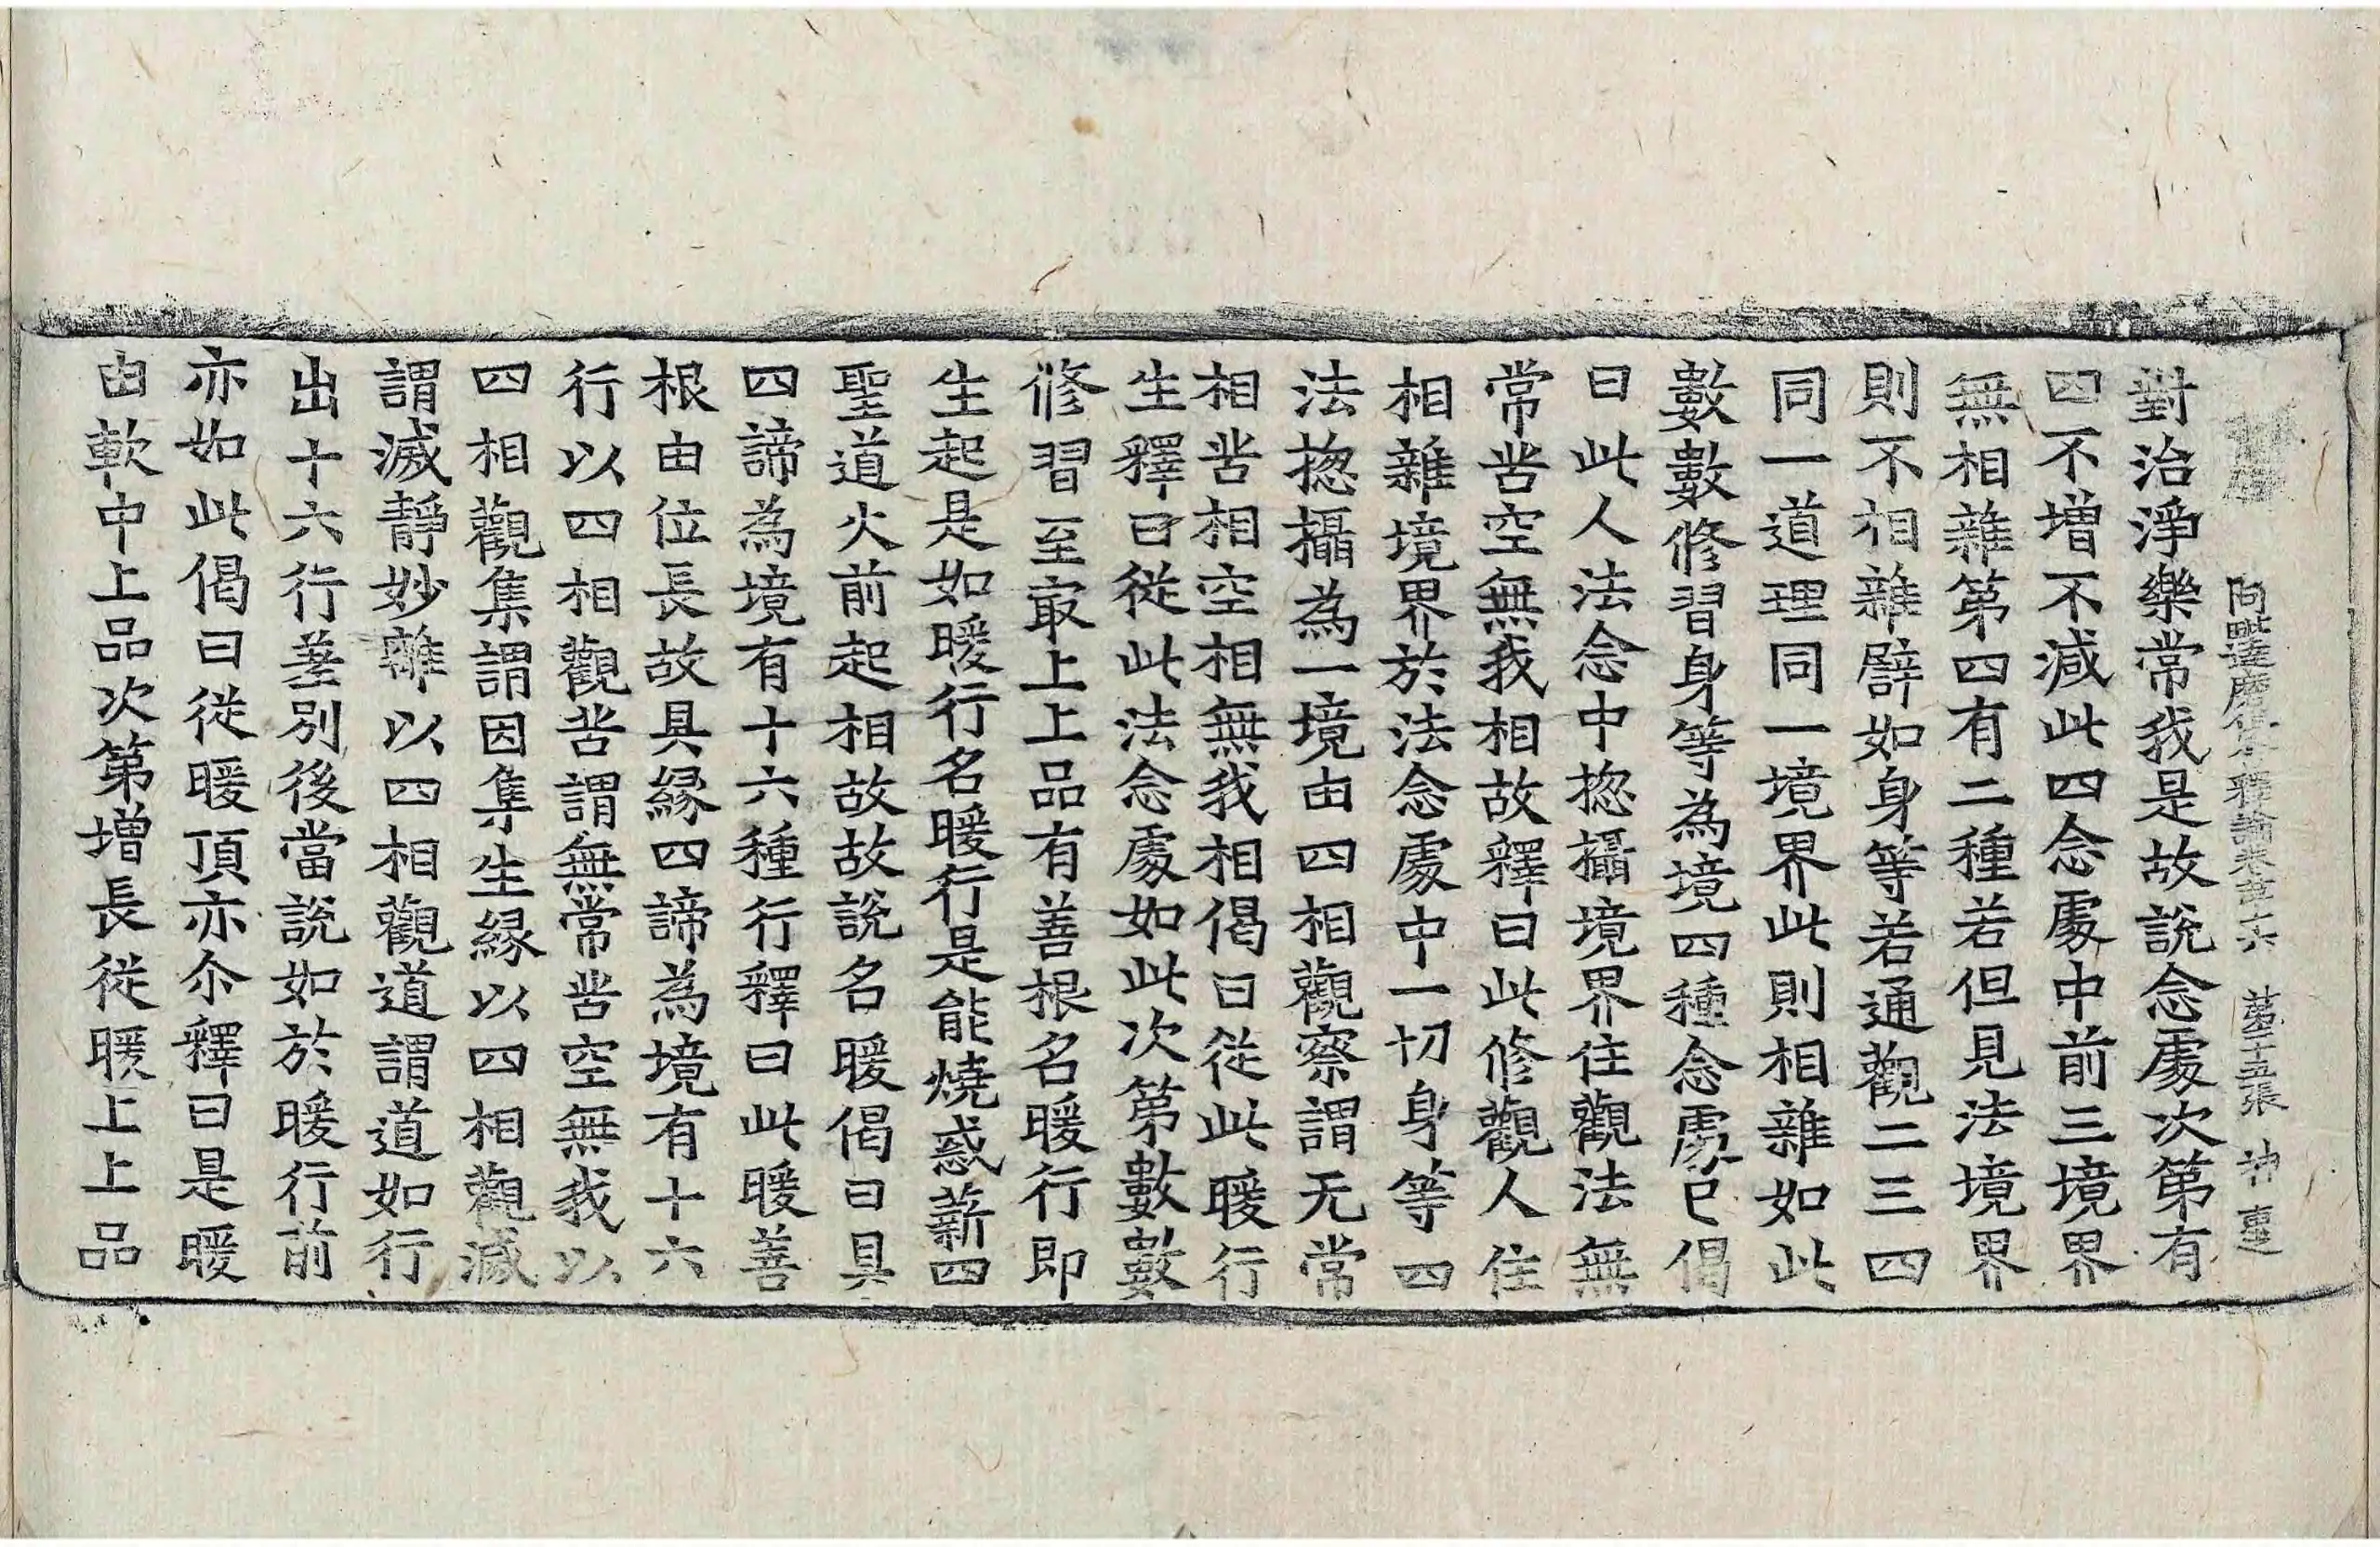 阿毗達磨俱舍釋論卷苐十六 苐十五張 神
對治淨樂常我是故說念處次第有
四不增不減此四念處中前三境界
無相雜第四有二種若但見法境界
則不相雜譬如身等若通觀二三四
同一道理同一境界此則相雜如此
數數修習身等為境四種念處已偈
曰此人法念中揔攝境界住觀法無
常苦空無我相故釋曰此修觀人住
相雜境界於法念處中一切身等四
法揔攝為一境由四相觀察謂无常
相苦相空相無我相偈曰從此暖行
生釋曰從此法念處如此次第數數
修習至冣上上品有善根名暖行即
生起是如暖行名暖行是能燒惑薪四
聖道火前起相故故說名暖偈曰具
四諦為境有十六種行釋曰此暖善
根由位長故具緣四諦為境有十六
行以四相觀苦謂無常苦空無我以
四相觀集謂因集生緣以四相觀滅
謂滅靜妙離以四相觀道謂道如行
出十六行差別後當說如於暖行前
亦如此偈曰從暖頂亦尒釋曰是暖
由軟中上品次第增長從暖上上品